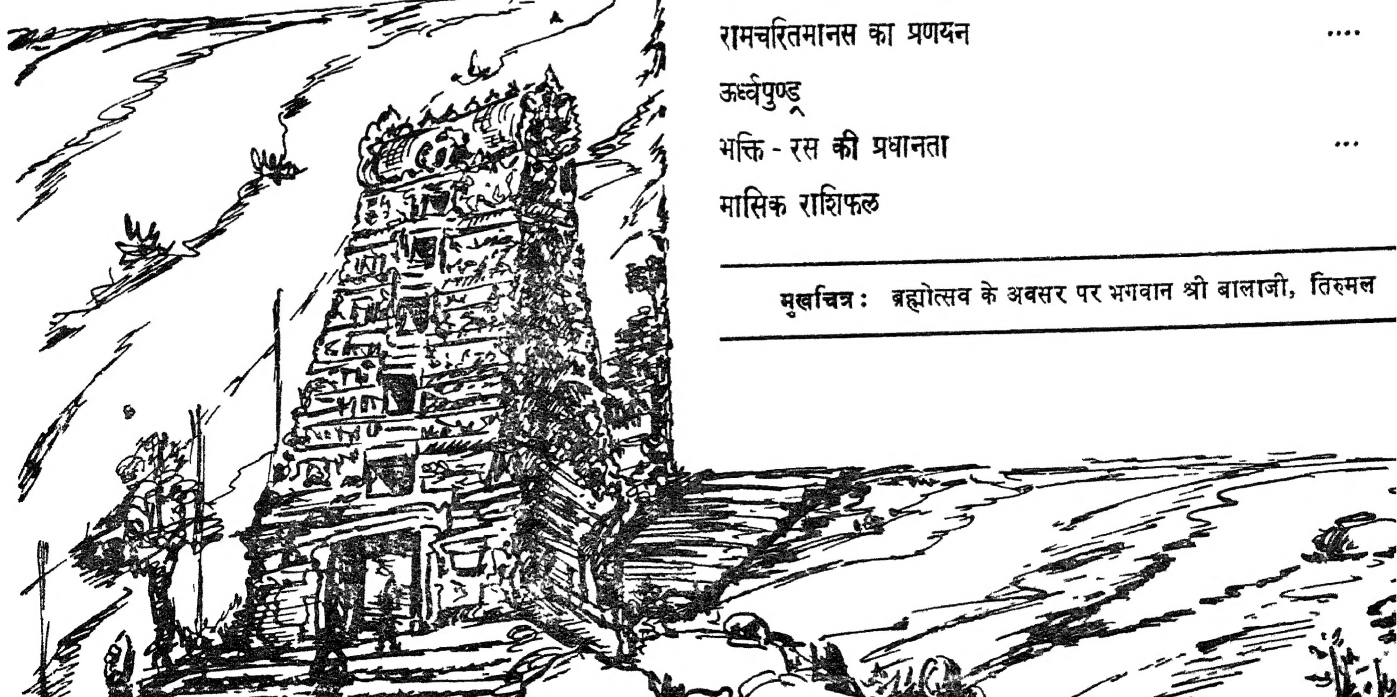 रामचरितमानस का प्रणयन ....
ऊर्ध्वपुण्ड्र
भक्ति - रस की प्रधानता ...
मासिक राशिफल
मुखचित्र : ब्रह्मोत्सव के अवसर पर भगवान श्री बालाजी, तिरुमल